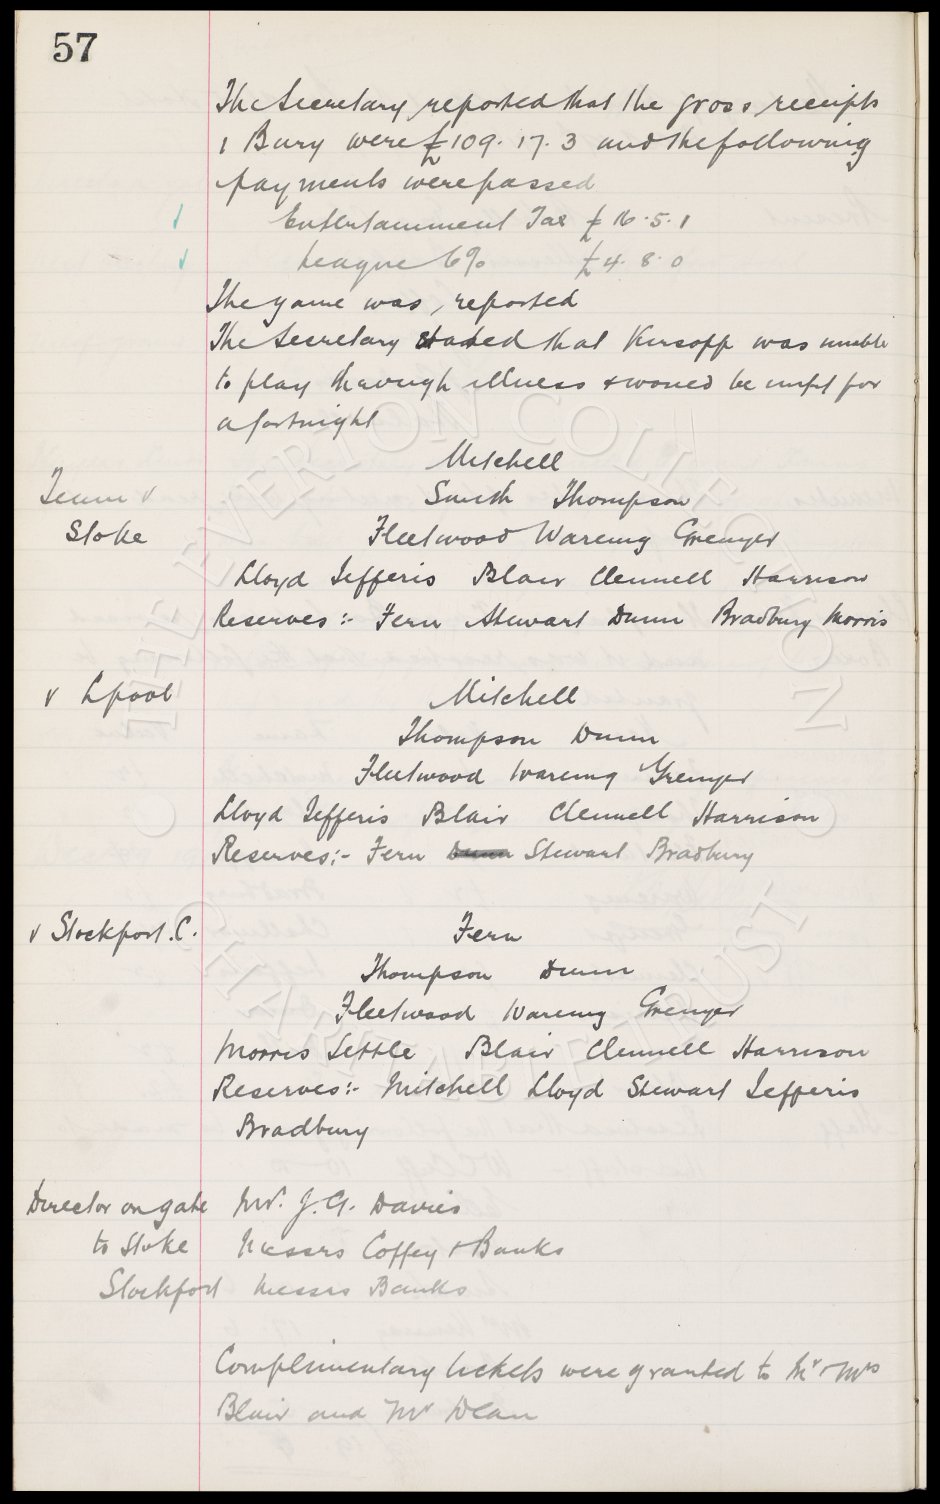 57
The Secretary reported that the gross receipts
v Bury were £109. 17. 3 and the following
payments were passed
Entertainment Tax £16. 5. 1
League 6% £4. 8. 0
The game was reported
The Secretary stated that Kirsopp was unable
to play through illness & would be unfit for
a fortnight
Mitchell
Team v Smith Thompson
Stoke Fleetwood Wareing Grenyer
Lloyd Jefferis Blair Clennell Harrison
Reserves :- Fern Stewart Dunn Bradbury Morris
v Lpool Mitchell
Thompson Dunn
Fleetwood Wareing Grenyer
Lloyd Jefferis Blair Clennell Harrison
Reserves :- Fern Dunn Stewart Bradbury
v Stockport. C. Fern
Thompson Dunn
Fleetwood Wareing Grenyer
Morris Settle Blair Clennell Harrison
Reserves :- Mitchell Lloyd Stewart Jefferis
Bradbury
Director on gate Mr. J. G. Davies
to Stoke Messrs Coffey & Banks
Stockport Messrs Banks
Complimentary tickets were granted to Mr & Mrs
Blair and Mr Dean
© THE EVERTON COLLECTION
CHARITABLE TRUST